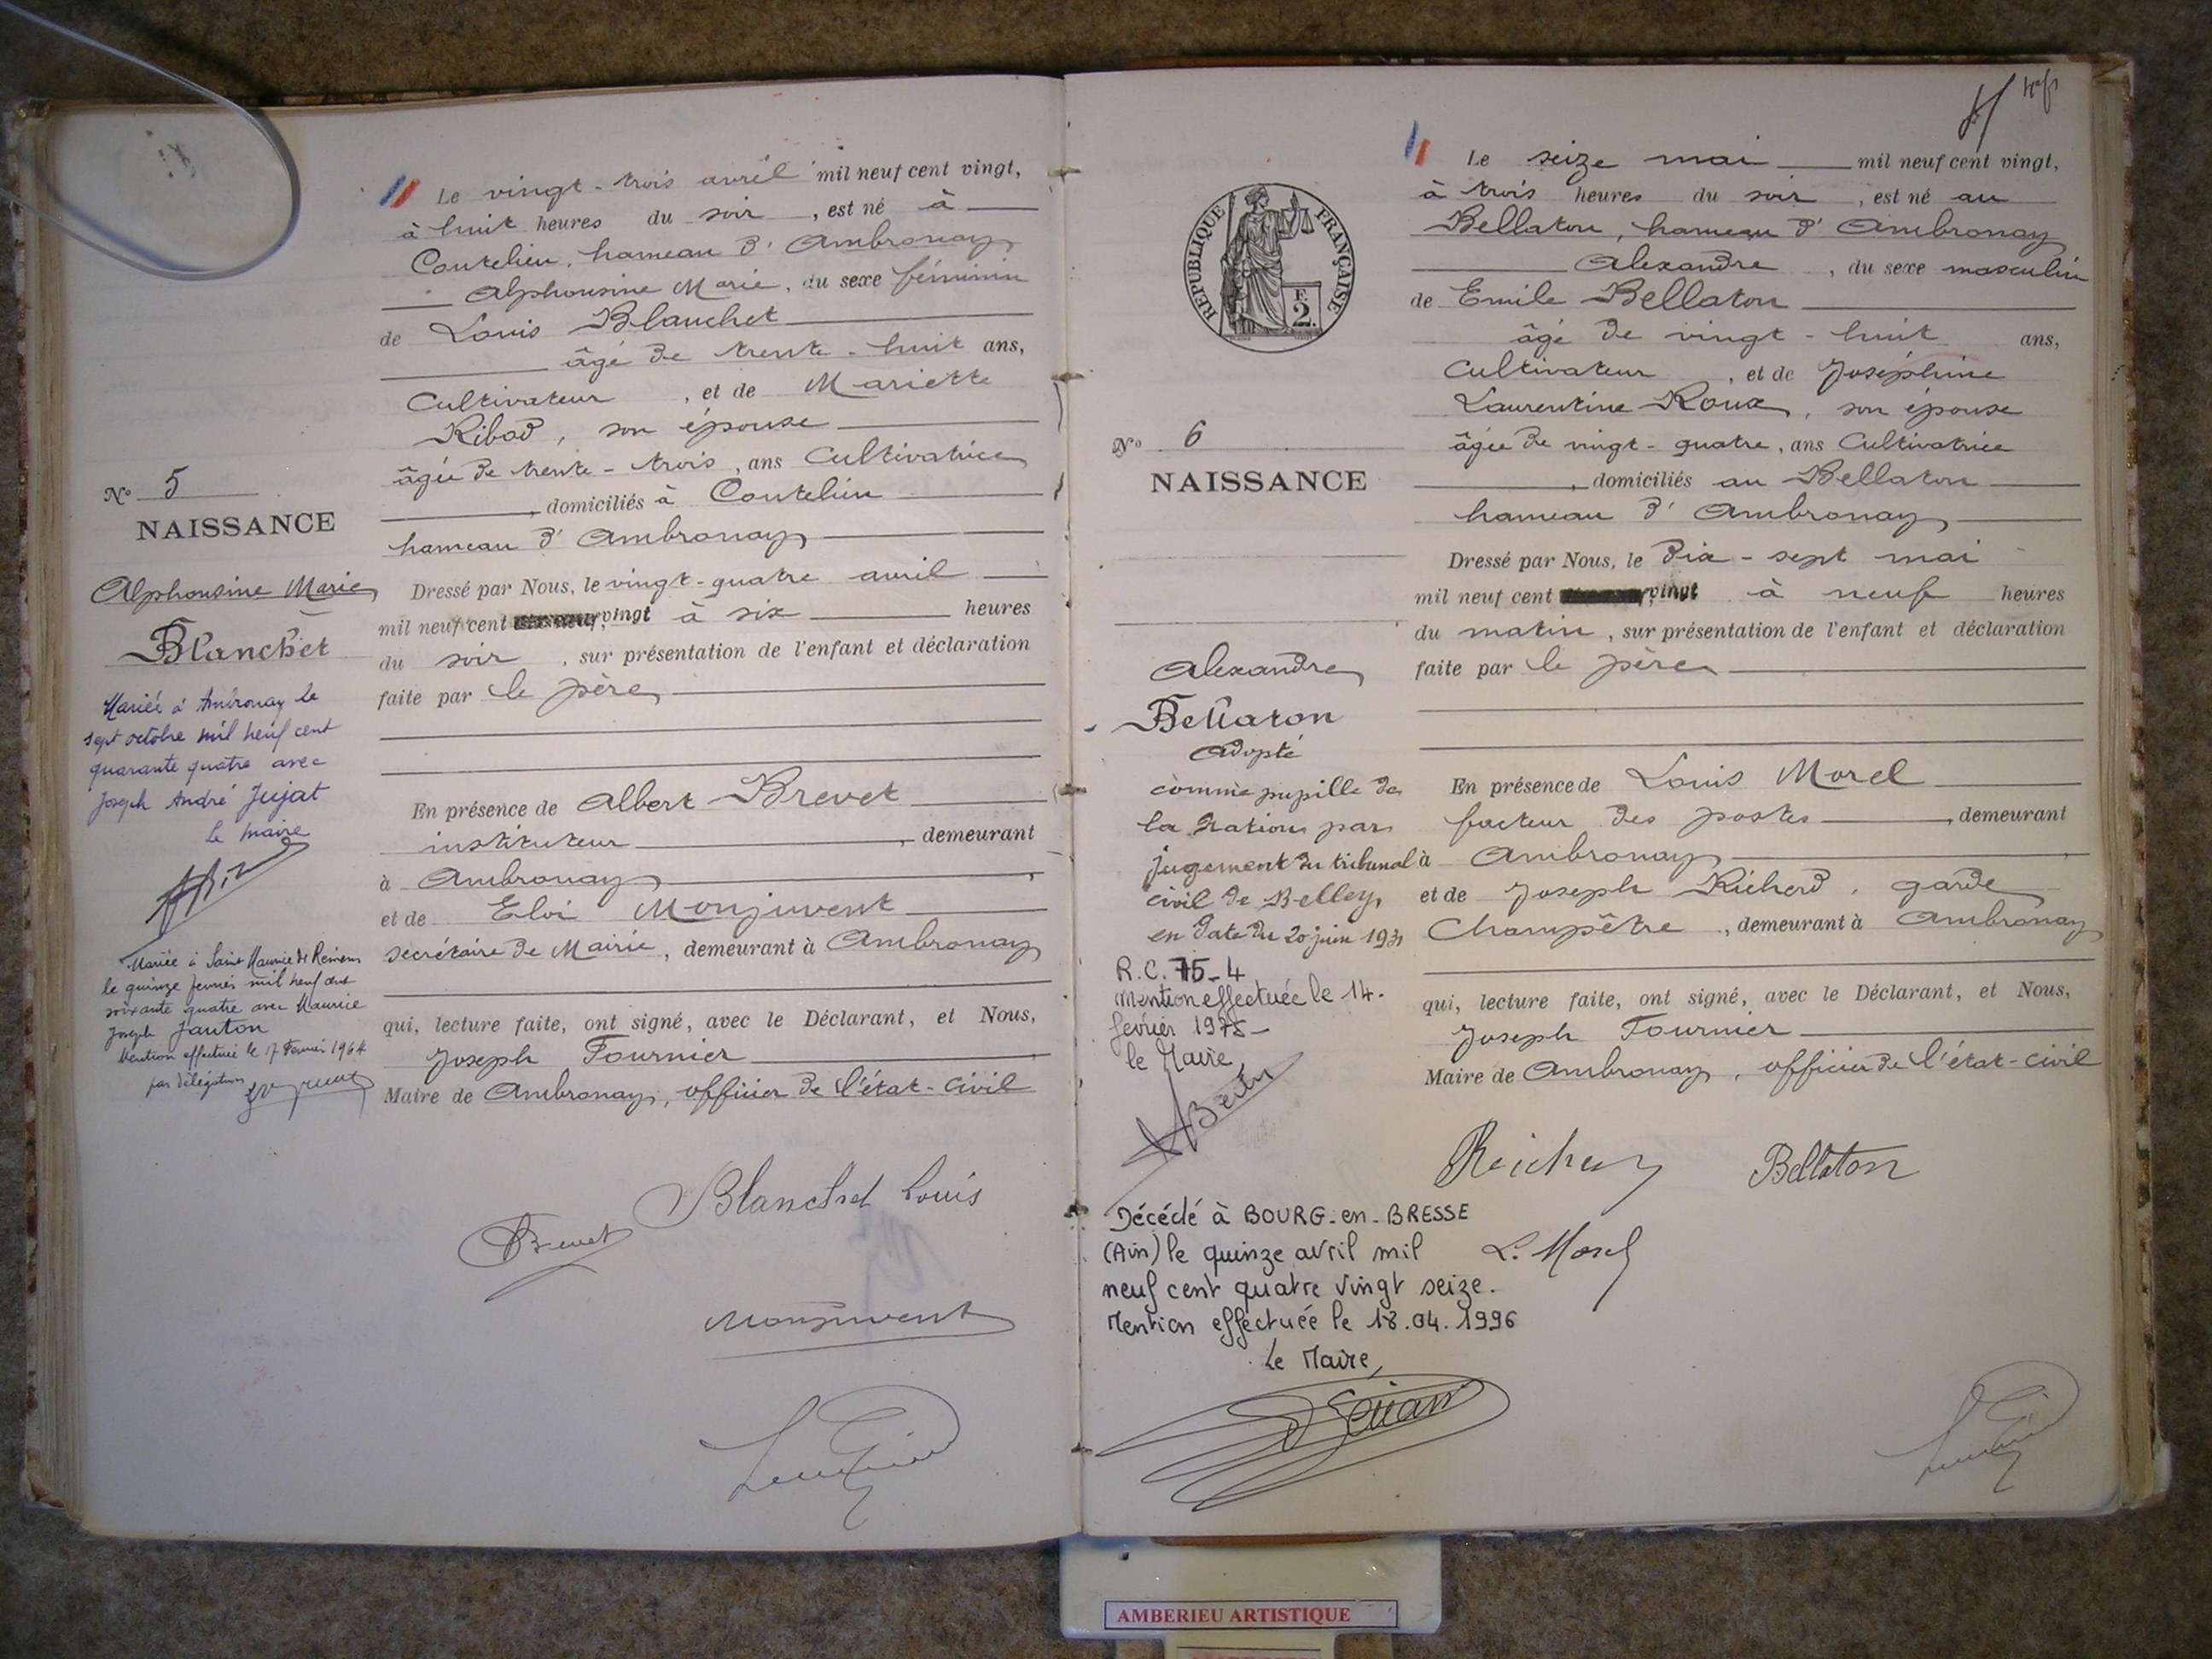 Le vingt-trois avril mil neuf cent vingt,
à huit heures du soir, est né à
Coutelieu, hameau d'Ambronay
Alphonsine Marie, du sexe féminin
de Louis Blanchet
âgé de trente-huit ans,
Cultivateur, et de Mariette
Ribod, son épouse
âgée de trente-trois, ans Cultivatrice
, domiciliés à Coutelieu
hameau d'Ambronay
Dressé par Nous, le vingt-quatre avril
mil neuf cent vingt à six heures
du soir, sur présentation de l'enfant et déclaration
faite par le père
En présence de Albert Brevet
instituteur, demeurant
à Ambronay,
et de Eloi Monjuvent
secrétaire de Mairie, demeurant à Ambronay
qui, lecture faite, ont signé, avec le Déclarant, et Nous,
Joseph Fournier
Maire de Ambronay, officier de l'état-civil
Blanchet Louis
Brevet
Monjuvent
No 5
NAISSANCE
Alphonsine Marie
Blanchet
Mariée à Ambronay le
sept octobre mil neuf cent
quarante quatre avec
Joseph André Jujat
Le Maire
Mariée à Saint Maurice de Rémens
le quinze février mil neuf cent
soixante quatre avec Maurice
Joseph Janton
Mention effectuée le 17 Février 1964
par délégation
Le seize mai mil neuf cent vingt,
à trois heures du soir, est né au
Bellaton, hameau d'Ambronay
Alexandre, du sexe masculin
de Emile Bellaton
âgé de vingt-huit ans,
Cultivateur, et de Joséphine
Laurentine Roux, son épouse
âgée de vingt-quatre, ans Cultivatrice
, domiciliés au Bellaton
hameau d'Ambronay
Dressé par Nous, le dix-sept mai
mil neuf cent vingt à neuf heures
du matin, sur présentation de l'enfant et déclaration
faite par le père
En présence de Louis Morel
facteur des postes, demeurant
à Ambronay
et de Joseph Richerd, garde
Champêtre, demeurant à Ambronay
qui, lecture faite, ont signé, avec le Déclarant, et Nous,
Joseph Fournier
Maire de Ambronay, officier de l'état-civil
Bellaton
L. Morel
REPUBLIQUE FRANÇAISE
F.
2.
No 6
NAISSANCE
Alexandre
Bellaton
Adopté
comme pupille de
la Nation par
jugement du tribunal
civil de Belley
en date du 20 juin 1931
R.C. 75-4
Mention effectuée le 14
février 1975
le Maire,
Décédé à BOURG-en-BRESSE
(Ain) le quinze avril mil
neuf cent quatre vingt seize.
Mention effectuée le 18.04.1996
Le Maire,
AMBERIEU ARTISTIQUE